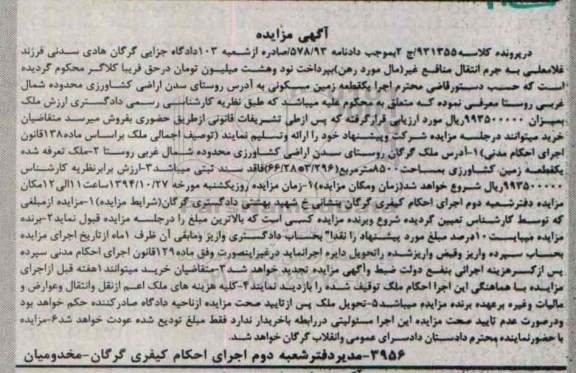 آگهی مزایده
درپرونده کلاسه ۹۳۱۳۵۵/ج ۲بموجب دادنامه ۵۷۸/۹۳/صادره ازشعبه ۱۰۳دادگاه جزایی گرگان هادی سدنی فرزند
غلامعلی به جرم انتقال منافع غیر(مال مورد رهن)بپرداخت نود وهشت میلیون تومان درحق فریبا کلاگر محکوم گردیده
است که حسب دستورقاضی محترم اجرا یکقطعه زمین مسکونی به آدرس روستای سدن اراضی کشاورزی محدوده شمال
غربی روستا معرفی نموده که متعلق به محکوم علیه میباشد که طبق نظریه کارشناسی رسمی دادگستری ارزش ملک
بمیزان ۹۹۳۵۰۰۰۰۰۰ریال مورد ارزیابی قرارگرفته که پس ازطی تشریفات قانونی ازطریق حضوری بفروش میرسد متقاضیان
خرید میتوانند درجلسه مزایده شرکت وپیشنهاد خود را ارائه وتسلیم نمایند (توصیف اجمالی ملک براساس ماده۱۳۸قانون
اجرای احکام مدنی)۱-آدرس ملک گرگان روستای سدن اراضی کشاورزی محدوده شمال غربی روستا ۲-ملک تعرفه شده
یکقطعه زمین کشاورزی بمساحت۸۵۰۰مترمربع فاقد سند ثبتی میباشد۳-ارزش برابرنظریه کارشناس
۹۹۳۵۰۰۰۰۰۰ریال شروع خواهد شد(زمان ومکان مزایده)۱-زمان مزایده روزیکشنبه مورخه ۱۳۹۴/۱۰/۲۷ساعت۱۱الی۱۲مکان
مزایده دفترشعبه دوم اجرای احکام کیفری گرگان بنشانی خ شهید بهشتی دادگستری گرگان(شرایط مزایده)۱-مزایده ازمبلغی
که توسط کارشناس تعیین گردیده شروع وبرنده مزایده کسی است که بالاترین مبلغ را درجلسه مزایده قبول نماید۲-برنده
مزایده میبایست ۱۰درصد مبلغ مورد پیشنهاد را نقدا" بحساب دادگستری واریز ومابقی آن ظرف ۱ماه ازتاریخ اجرای مزایده
بحساب سپرده واریز وقبض واریزشده راتحویل دایره اجرانماید درغیراینصورت وفق ماده۱۲۹قانون اجرای احکام مدنی سپرده
پس ازکسرهزینه اجرائی بنفع دولت ضبط وآگهی مزایده تجدید خواهد شد۳-متقاضیان خرید میتوانند ۱هفته قبل ازاجرای
مزایده با هماهنگی این اجرا احکام ملک توقیف شده را بازدید نمایند۴-کلیه هزینه های ملک اعم ازنقل وانتقال وعوارض و
مالیات وغیره برعهده برنده مزایده میباشد۵-تحویل ملک پس ازتایید صحت مزایده ازناحیه دادگاه صادرکننده حکم خواهد بود
ودرصورت عدم تایید صحت مزایده این اجرا مسئولیتی دررابطه باخریدار ندارد فقط مبلغ تودیع شده عودت خواهد شد۶-مزایده
با حضورنماینده محترم دادستان دادسرای عمومی وانقلاب گرگان خواهد شد.
۳۹۵۶-مدیردفترشعبه دوم اجرای احکام کیفری گرگان-مخدومیان